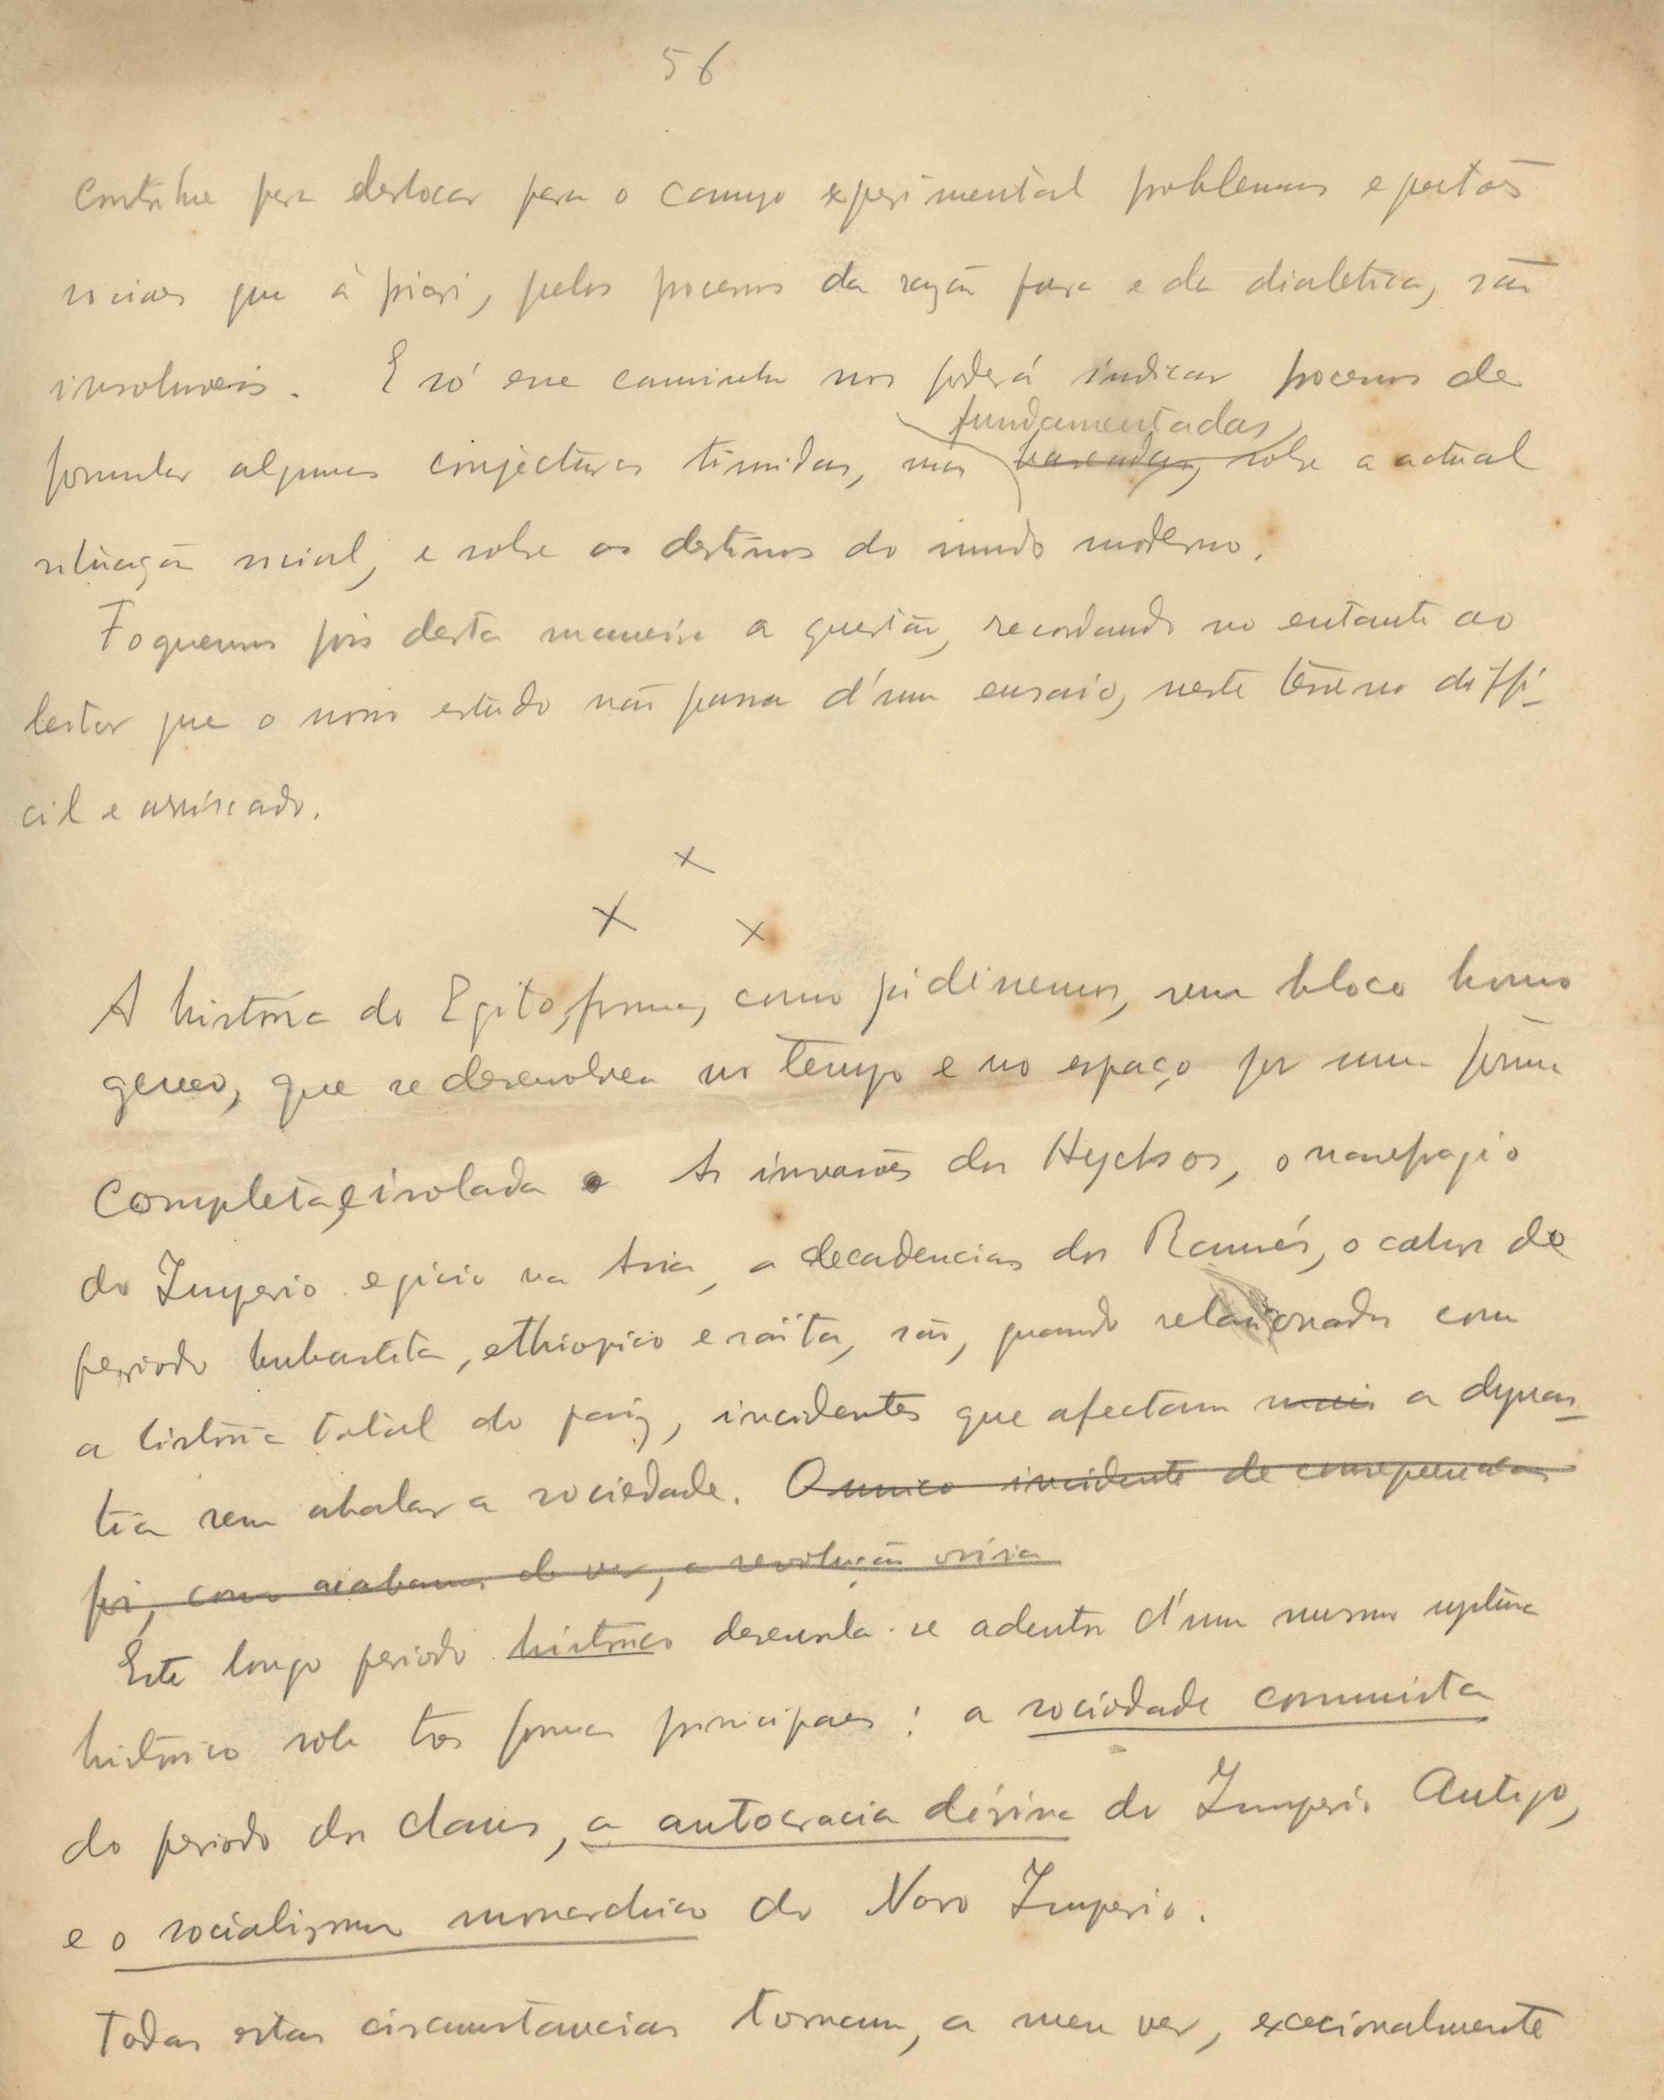 56
contribue para deslocar para o campo experimental problemas e questões
sociaes que à priori, pelos processos da razão pura e da dialetica, são
insoluveis. E só esse caminho nos poderá indicar processos de
fundamentadas
formular algumas conjecturas timidas, mas baseadas, sobre a actual
situação social, e sobre os destinos do mundo moderno.
Foquemos pois desta maneira a questão, recordando no entanto ao
leitor que o nosso estudo não passa d'um ensaio, neste terreno diffi-
cil e arriscado.
x
x x
A historia do Egito, forma, como já dissemos, um bloco homo
geneo, que se desenvolveu no tempo e no espaço por uma forma
completa, e isolada. As invasões dos Hycksos, o naufragio
do Imperio egicio na Asia, a decadencia dos Ramsés, o cahos do
periodo bubastita, ethiopico e saïta, são, quando relacionados com
a historia total do paiz, incidentes que afectam mais a dynas-
tia sem abalar a sociedade. O unico incidente de consequencias
foi, como acabamos de ver, a revolução osiria
Este longo periodo historico desenrola-se adentro d'um mesmo
historico sob tres formas principaes: a sociedade comunista
do periodo dos clans, a autocracia divina do Imperio Antigo,
e o socialismo monarchico do Novo Imperio.
Todas estas circumstancias tornam, a meu ver, excecionalmente